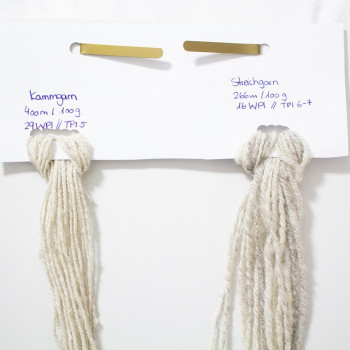 Kammgarn
400m / 100g
29WPI // TPI 5
Streichgarn
266m / 100g
16 WPI // TPI 6-7